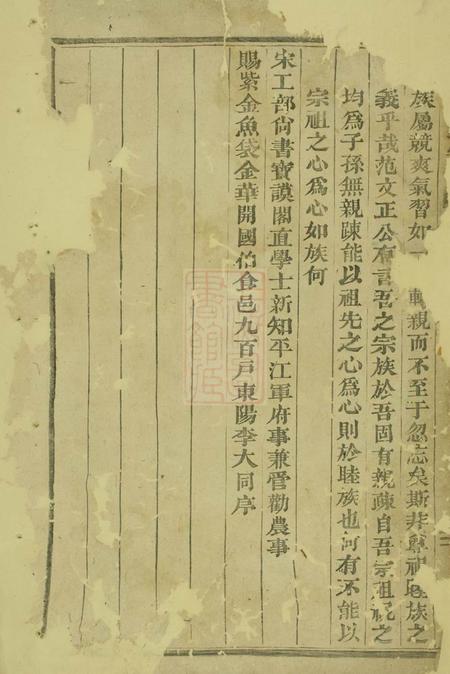 族屬競爽氣習如一 轍親而不至于忽忘矣斯非尊祖睦族之
義乎哉范文正公有言吾之宗族於吾固有親疎自吾宗祖視之
均為子孫無親疎能以祖先之心為心則於睦族也何有不能以
宗祖之心為心如族何
宋工部尚書寶謨閣直學士新知平江軍府事兼管勸農事
賜紫金魚袋金華開國伯食邑九百戶東陽李大同序